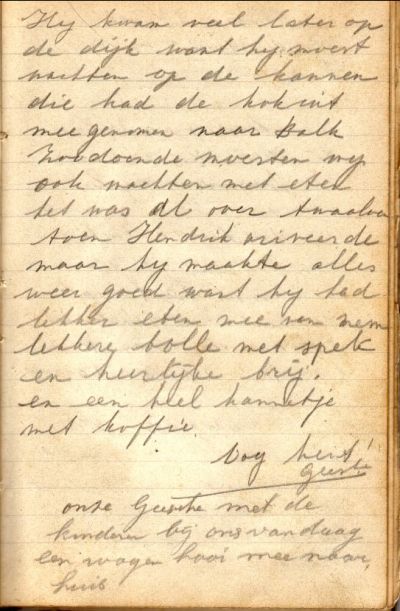 Hy kwam veel later op
de dijk want hy moest
wachten op de kannen
die had de kokint
mee genomen naar Halk
Zoodoende moesten wy
ook wachten met eten
het was al over twaalven
toen Hendrik ariveerde
maar hy maakte alles
weer goed want hy had
lekker eten mee van mem
lekkere bolle met spek
en heerlijke brij.
en een heel kannetje
met koffie.
Geeske
onze Geeske met de
kinderen bij ons vandaag
een wagen hooi mee naar
huis